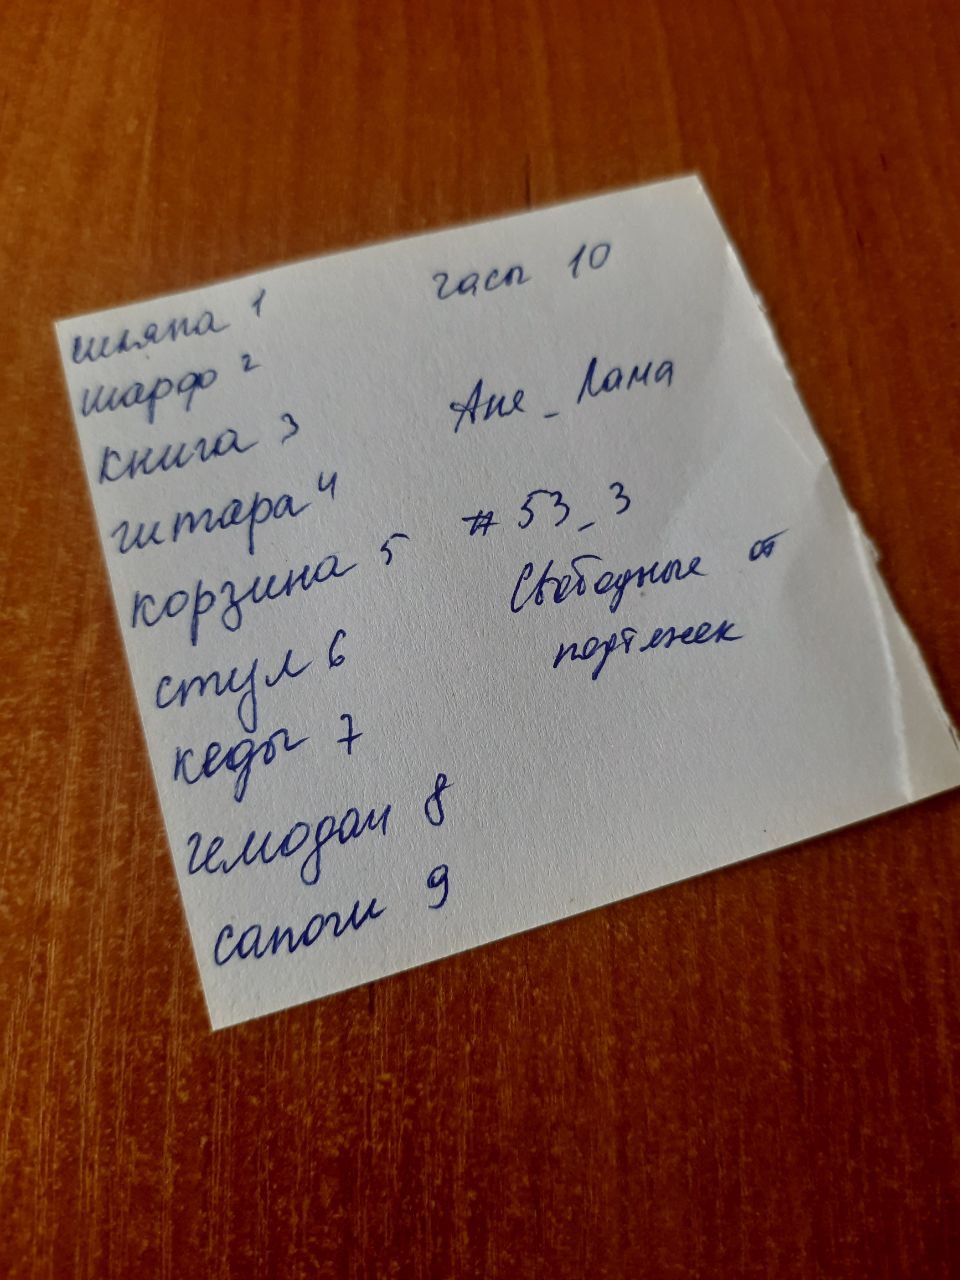 шляпа 1
шарф 2
книга 3
гитара 4
корзина 5
стул 6
кеды 7
чемодан 8
сапоги 9
часы 10
Апе_Лама
#53_3
Свободные от
подтяжек